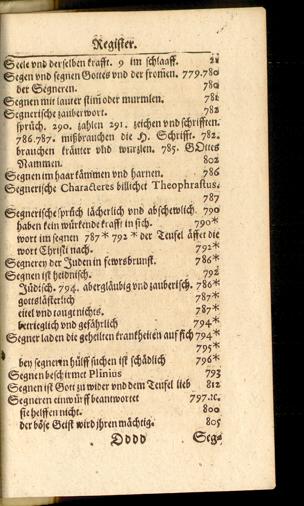 Register.
Seele vnd derselben krafft. 9 im schlaaff. 21
Segen vnd segnen Gottes vnd der from̃en. 779.780
der Segneren. 780
Segnen mit lauter stim̃ oder murmlen. 781
Segnerische zauberwort. 782
sprüch. 290. zahlen 291. zeichen vnd schrifften.
786.787. mißbrauchen die H. Schrifft. 782.
brauchen kräuter vnd wurzlen. 785. GOttes
Nammen. 802
Segnen im haar kämmen vnd harnen. 786
Segnerische Characteres billichet Theophrastus.
787
Segnerische sprüch lächerlich vnd abschewlich. 790
haben kein würckende krafft in sich. 790*
wort im segnen 787* 792* der Teufel äffet die
wort Christi nach. 792*
Segnerey der Juden in fewrsbrunst. 786*
Segnen ist heidnisch. 792
Jüdisch. 794. abergläubig vnd zauberisch. 786*
gottslästerlich 787*
eitel vnd taugt nichts. 787*
betrieglich vnd gefährlich 794*
Segner laden die geheilten kranckheiten auf sich 794*
795*
bey segneren hülff suchen ist schädlich 796*
Segnen beschirmet Plinius 793
Segnen ist Gott zu wider vnd dem Teufel lieb 812
Segneren einwürff beantwortet 797.ꝛc.
sie helffen nicht. 800
der böse Geist wird jhren mächtig. 805
Dddd Seg-